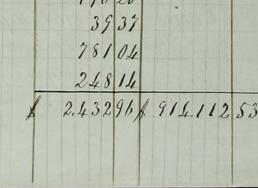 39 37
781 04
248 14
$ 2,432 96 $ 914,112 53